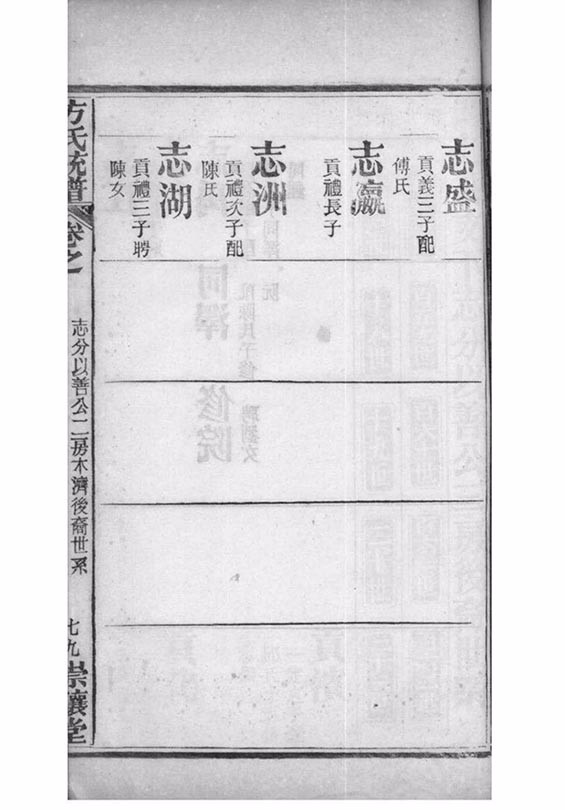 志盛
貢義三子配
傅氏
志瀛
貢禮長子
志洲
貢禮次子配
陳氏
志湖
貢禮三子聘
陳女
方氏統譜
卷之
志分以善公二房木濟後裔世系
七九
崇讓堂